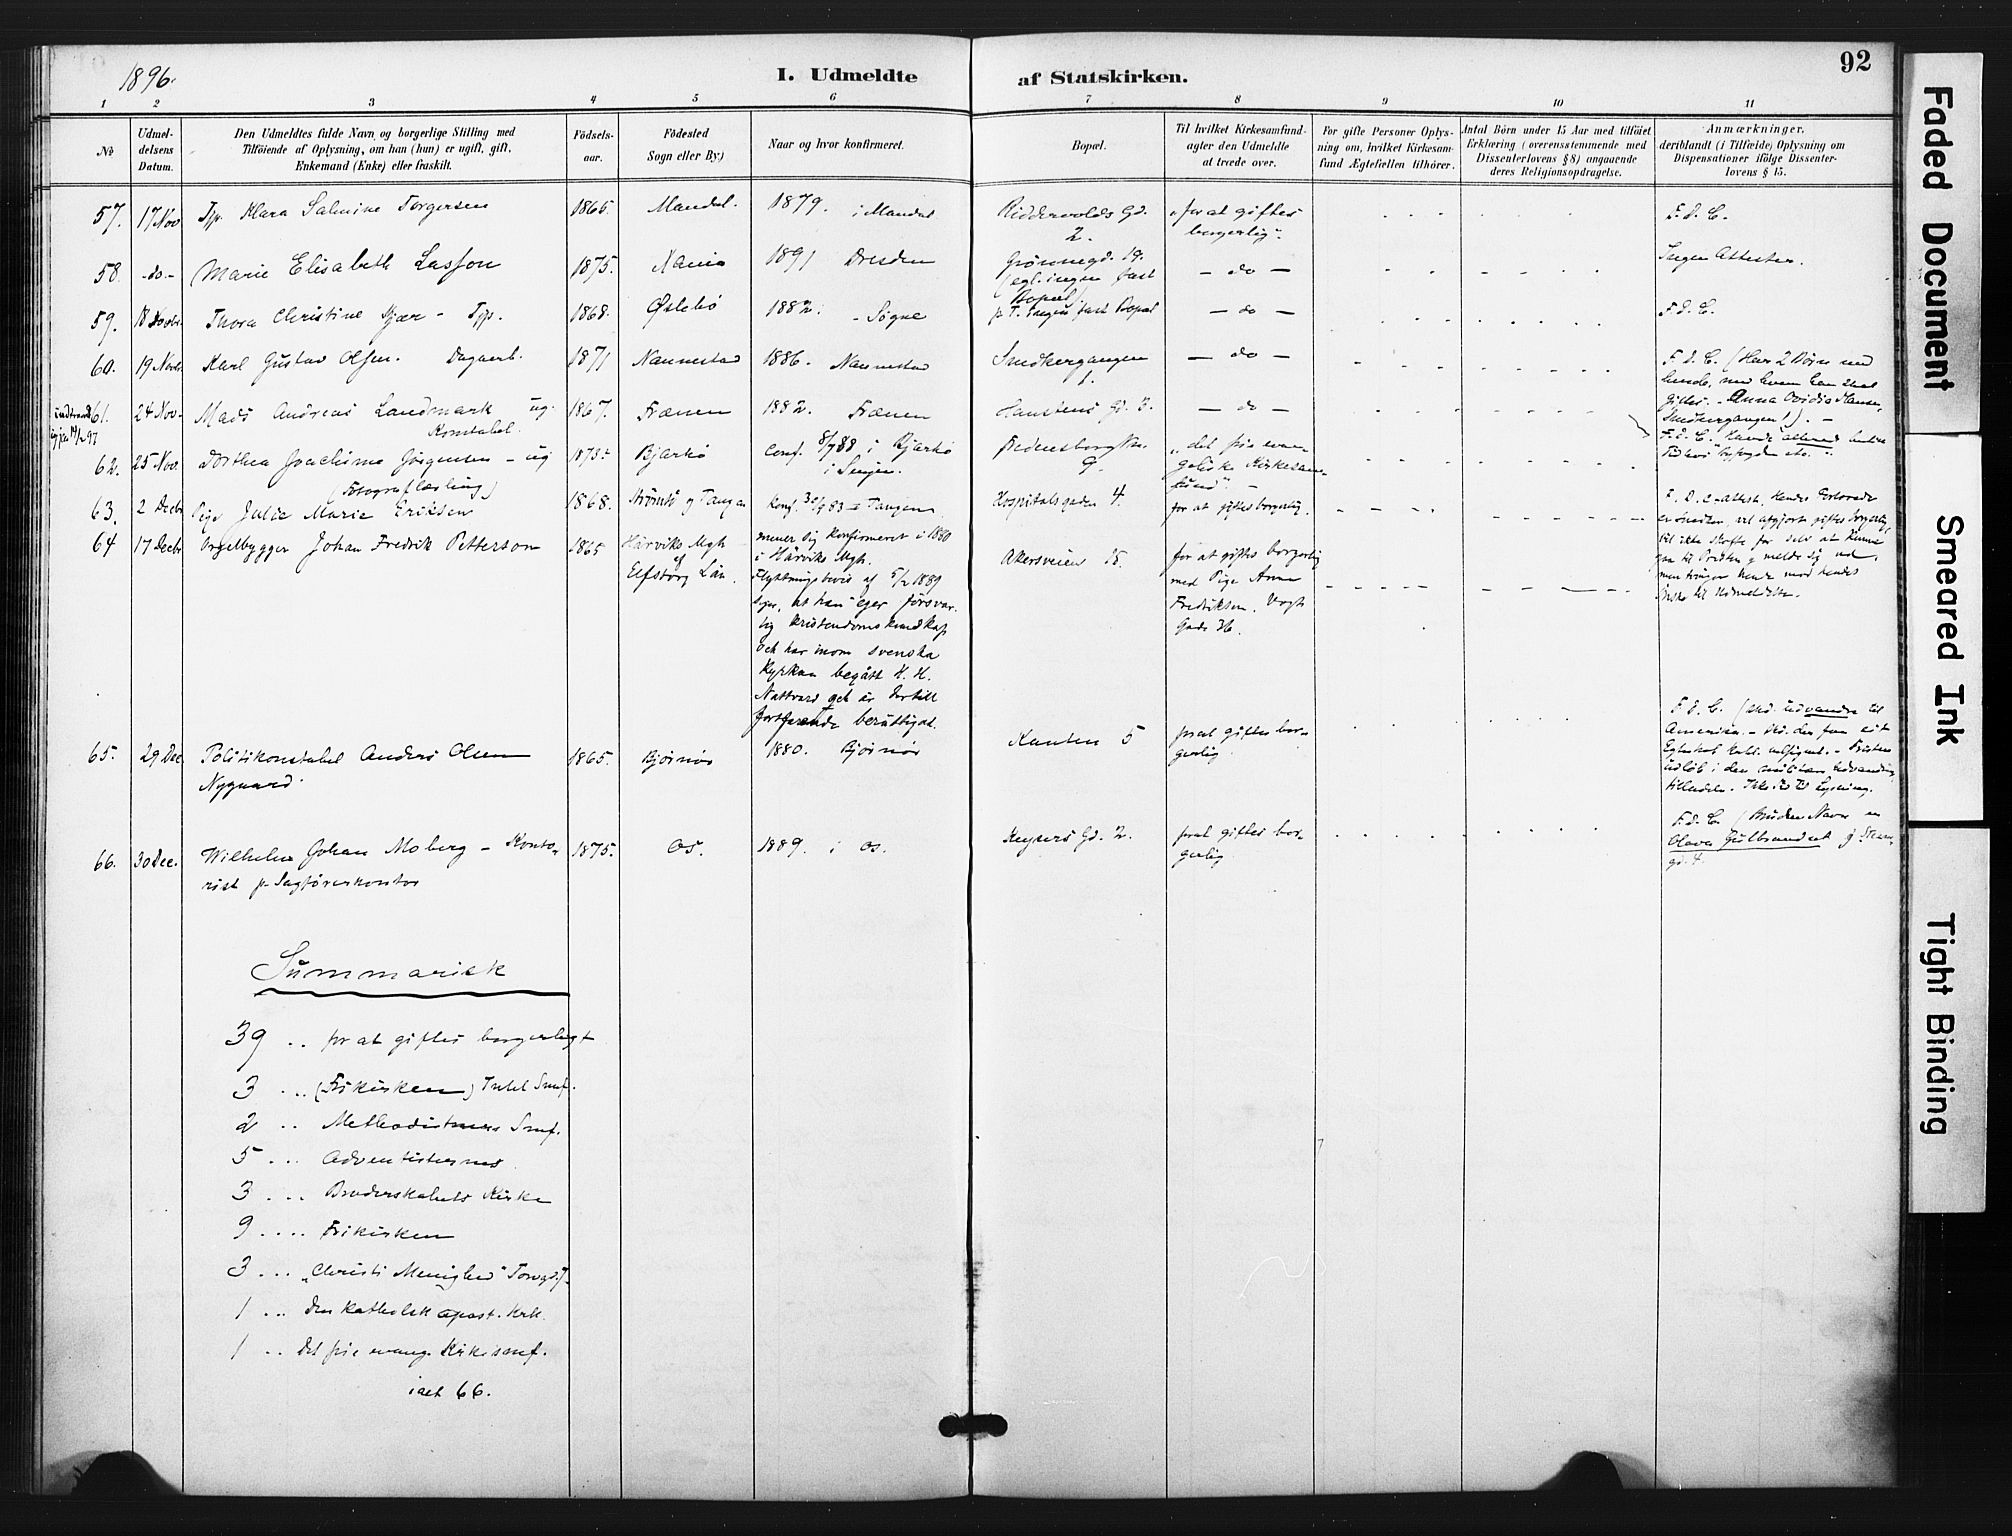 1896.
I. Udmeldte af Statskirken.
92
1 2 3 4 5 6 7 8 9 10 11
No
Udmel-
delsens
Datum.
Den Udmeldtes fulde Navn og borgerlige Stilling med
Tilføiende af Oplysning, om han (hun) er ugift, gift,
Enkemand (Enke) eller fraskilt.
Fødsels-
aar.
Fødested
Sogn eller By.)
Naar og hvor konfirmeret.
Bopæl.
Til hvilket Kirkesamfund-
agter den Udmeldte
at træde over.
For gifte Personer Oplys-
ning om, hvilket Kirkesam-
fund Ægtefællen tilhører.
Antal Børn under 15 Aar med tilføiet
Erklæring (overensstemmende med
Dissenterlovens § 8) angaaende
deres Religionsopdragelse.
Anmærkninger,
deriblandt (i Tilfælde) Oplysning om
Dispensationer ifølge Dissenter-
lovens § 15.
57. 17 Nov Typ. Klara Salmine Torgersen 1865. Mandal. 1879. i Mandal Riddervolds Gd. 2. "for at giftes borgerlig". F. d. C.
58. -do- Marie Elisabeth Lasson 1875. 1891 Dresden Grønnegd. 19. (egl. ingen fast Bopæl) - do - Ingen Attester.
59. 18 Novbr. Thora Christine Kjær - Typ. 1868. Øslebø 1882. - Søgne p. T. ingen fast Bopæl - do - F. d. C.
60. 19 Novbr. Karl Gustav Olsen. Dagarb. 1871 Nannestad 1886. Nannestad Smedkergangen 1. - do - F. d. C. (Har 2 Børn med
hende, med hvem han skal
giftes. - Anna Ovidia Hansen,
Smedkergangen 1). -
61. 24 Nov. Mads Andreas Landmark ug. Konstabel. 1867. Frænen 1882. Frænen Hanstens Gd. 3. - do -
62. 25 Nov. Dorthea Joachime Jørgensen - ug (Fotograflærling) 1873. Bjarkø Conf. 8/7 88 i Bjarkø i Senjen. Fredensborgvn. 9. "det frie evan-
geliske Kirkesam-
fund" -
63. 2 Decbr Pige Julie Marie Eriksen 1868. Strømsø og Tangen Konf. 30/9 83 i Tangen Hospitalsgaden 4 for at giftes borgerlig.
64 17 Decbr Orgelbygger Johan Fredrik Petterson 1865 Härviks Mgh af Elfsborg Län.
mener sig konfirmeret i 1880
i Härviks Mgh.
Flyttningsbevis af 5/2 1889
siger, at han "eger försvar-
lig kristendomskundskap
och har inom svenska
Kyrkan begått H. H.
Nattvard och är dertill
fortfarande berättigad.
Akersveien 18. for at giftes borgerlig
med Pige Anna
Fredriksen, Vogts
Gade 36.
65. 29 Dec Politikonstabel Anders Olsen
Nygaard. 1865. Bjørnør 1880. Bjørnør Kanten 5 for at giftes bor-
gerlig F. d. C. (skl. udvandre til
Amerika.
66. 30 Dec. Wilhelm Johan Moberg - Konto-
rist p. Sagførerkontor 1875. Os. 1889. i Os. Keysers Gd. 2. for at giftes bor-
gerlig F. d. C. (Brudens Navn er
Olava Gulbrandsen
Summarisk
39 .. for at giftes borgerligt
3 ... (Frikirken) Intet Smf.
2 .. Methodisternes Smf.
5 ... Adventisternes
3 ... Broderskabets Kirke
9 .... Frikirken
3 ... "Christi Menighed" Torvgd. 7
1 ... Den katholsk apost. Kirk.
1 .. Det frie evang. Kirkesamf.
ialt 66.
Faded Document
Smeared Ink
Tight Binding